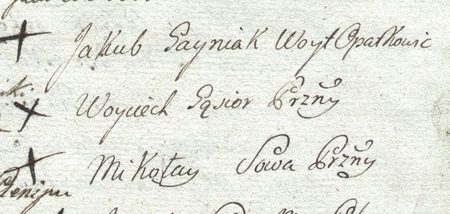 Jakub Gayniak Woyt Opatkowic
Woyciech Gąsior Przny
Mikołay Sowa Przny